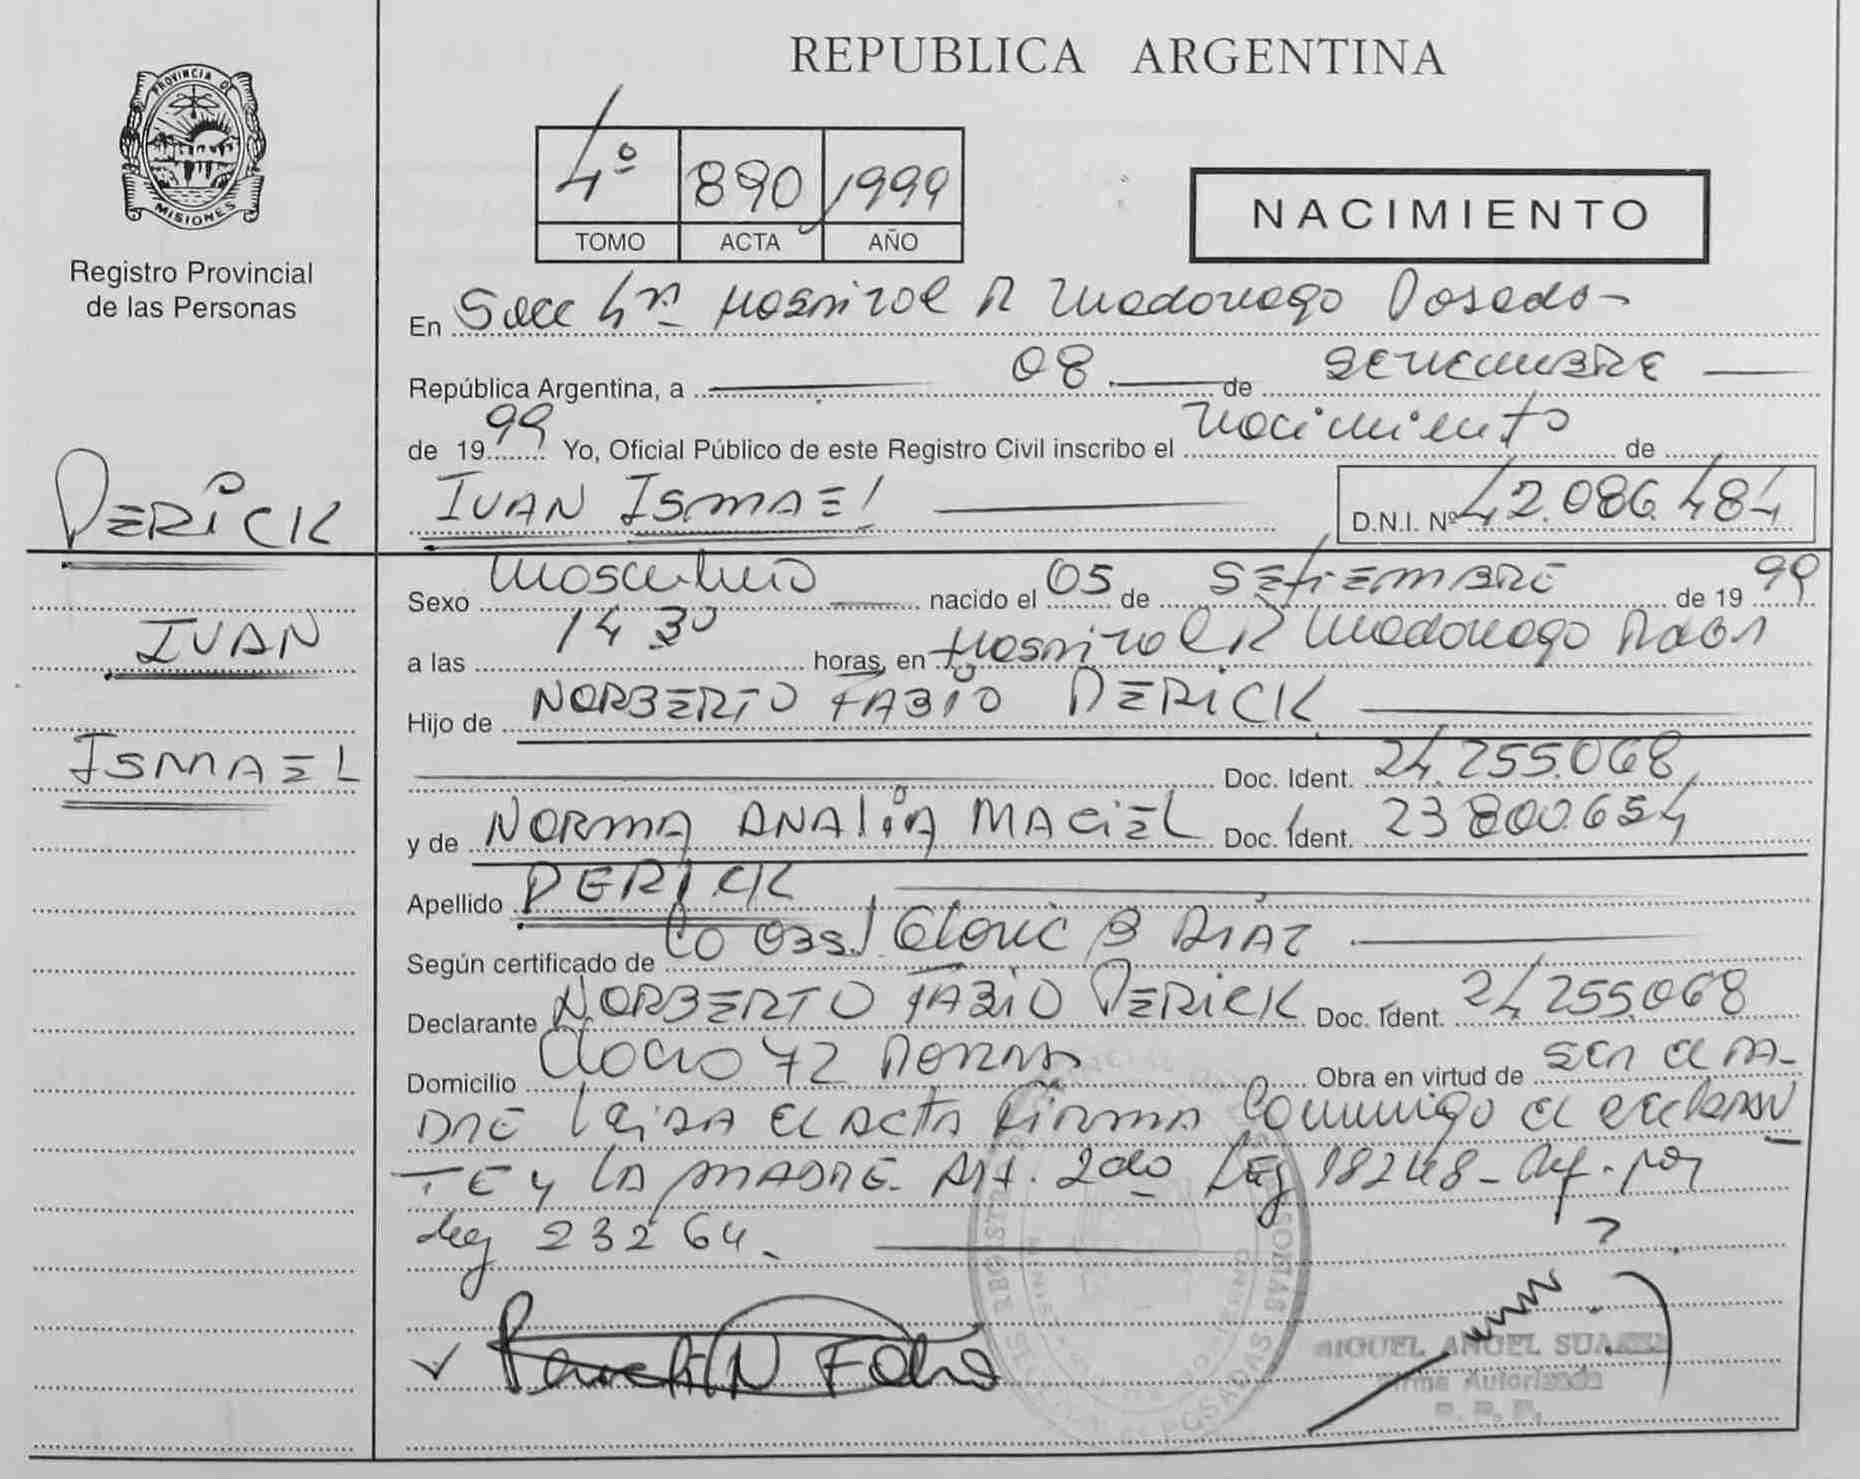 REPUBLICA ARGENTINA
PROVINCIA DE
MISIONES
Registro Provincial
de las Personas
4º 890 1999
TOMO ACTA AÑO
NACIMIENTO
En Secc 4ta Hospital R Madariaga Posadas
República Argentina, a 08 de SETIEMBRE
de 1999 Yo, Oficial Público de este Registro Civil inscribo el nacimiento de
DERICK
IVAN ISMAEL
D.N.I. Nº 42.086.484
Sexo Masculino nacido el 05 de SETIEMBRE de 1999
IVAN
a las 14 30 horas, en Hospital R Madariaga
Hijo de NORBERTO FABIO DERICK
ISMAEL
Doc. Ident. 24.255.068
y de NORMA ANALIA MACIEL Doc. Ident. 23800654
Apellido DERICK
Según certificado de Obs. DIAZ
Declarante NORBERTO FABIO DERICK Doc. Ident. 24255068
Domicilio 72 Obra en virtud de SER EL PA-
DRE LEIDA EL ACTA FIRMA Conmigo EL DECLARAN
TE y LA MADRE. Art. 2do Ley 18248 - por
Ley 23264.-
Fabio
MIGUEL ANGEL SUAREZ
Firma Autorizada
R. P. P.
POSADAS